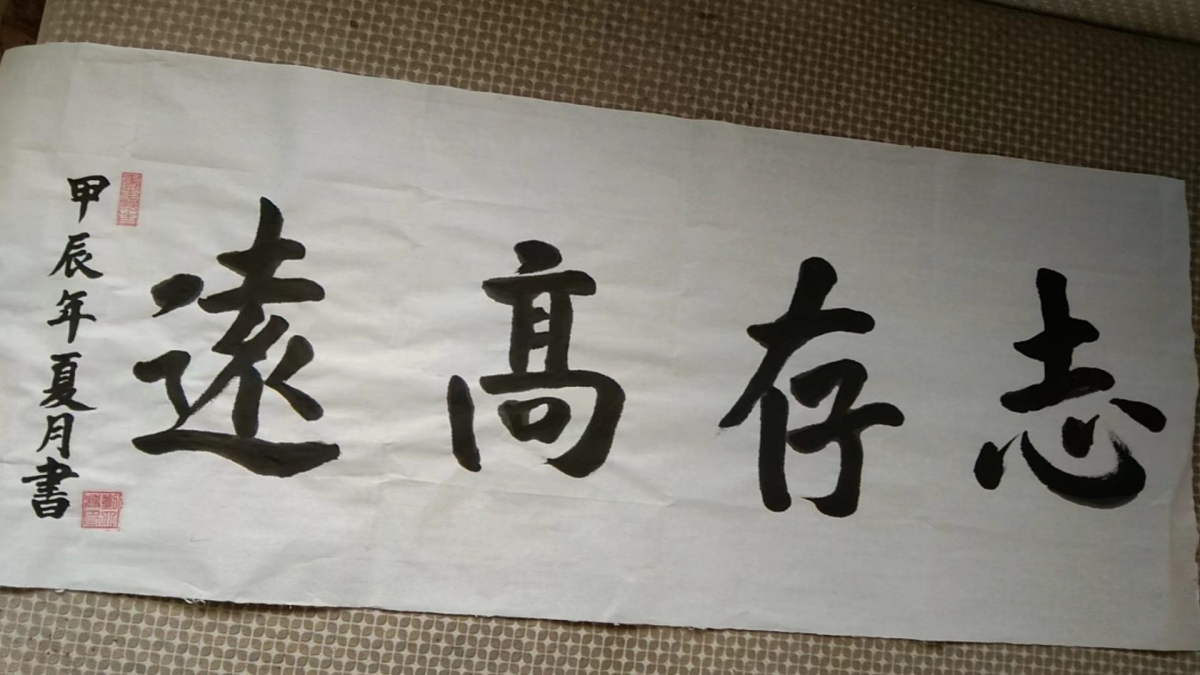 志存髙遠
甲辰年夏月書